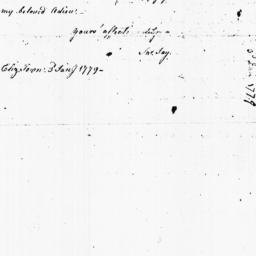 my beloved Adieu._
yours affect.
Sa: Jay.
Eliz: Town. 3 Jan.y 1779_
1779